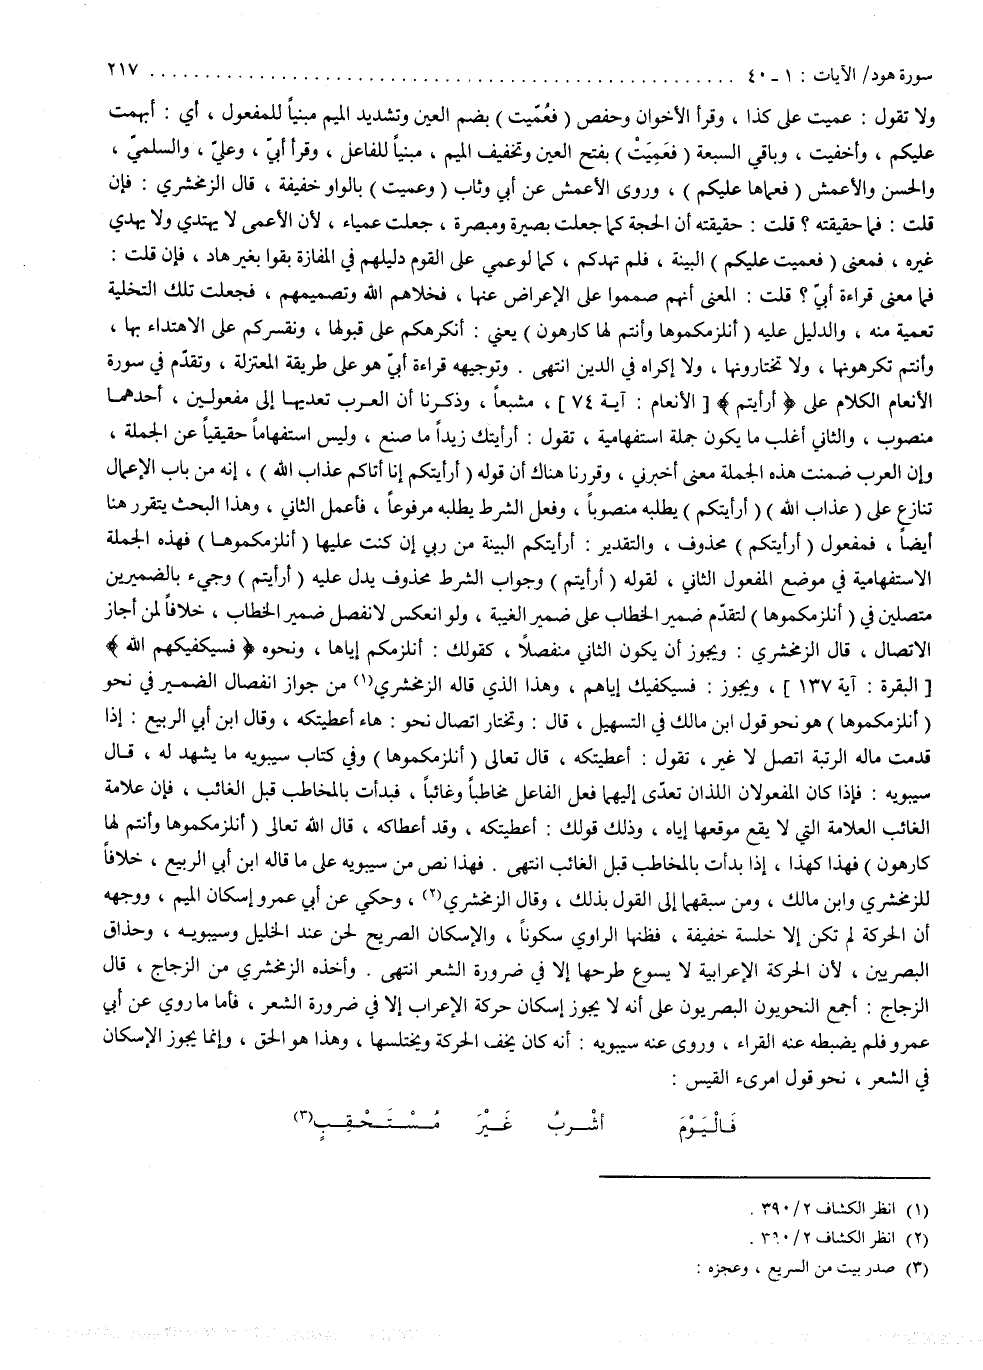 سورة هود/ الآيات : ١ ـ ٤٠ ........................................................ ٢١٧
ولا تقول : عميت على كذا ، وقرأ الأخوان وحفص ( فعُمّيت ) بضم العين وتشديد الميم مبنياً للمفعول ، أي : أبهمت
عليكم ، وأخفيت ، وباقي السبعة ( فعَمِيَتْ ) بفتح العين وتخفيف الميم ، مبنياً للفاعل ، وقرأ أبيّ ، وعليّ ، والسلميّ ،
والحسن والأعمش ( فعماها عليكم ) ، وروى الأعمش عن أبي وثاب ( وعميت ) بالواو خفيفة ، قال الزمخشري : فإن
قلت : فما حقيقته ؟ قلت : حقيقته أن الحجة كما جعلت بصيرة ومبصرة ، جعلت عمياء ، لأن الأعمى لا يهتدي ولا يهدي
غيره ، فمعنى ( فعميت عليكم ) البينة ، فلم تهدكم ، كما لو عمي على القوم دليلهم في المفازة بقوا بغير هاد ، فإن قلت :
فما معنى قراءة أبيّ ؟ قلت : المعنى أنهم صمموا على الإعراض عنها ، فخلاهم الله وتصميمهم ، فجعلت تلك التخلية
تعمية منه ، والدليل عليه ( أنلزمكموها وأنتم لها كارهون ) يعني : أنكرهكم على قبولها ، ونقسركم على الاهتداء بها ،
وأنتم تكرهونها ، ولا تختارونها ، ولا إكراه في الدين انتهى . وتوجيهه قراءة أبيّ هو على طريقة المعتزلة ، وتقدّم في سورة
الأنعام الكلام على ﴿ أرأيتم ﴾ [ الأنعام : آية ٧٤ ] ، مشبعاً ، وذكرنا أن العرب تعديها إلى مفعولين ، أحدهما
منصوب ، والثاني أغلب ما يكون جملة استفهامية ، تقول : أرأيتك زيداً ما صنع ، وليس استفهاماً حقيقياً عن الجملة ،
وإن العرب ضمنت هذه الجملة معنى أخبرني ، وقررنا هناك أن قوله ( أرأيتكم إنا أتاكم عذاب الله ) ، إنه من باب الإعمال
تنازع على ( عذاب الله ) ( أرأيتكم ) يطلبه منصوباً ، وفعل الشرط يطلبه مرفوعاً ، فأعمل الثاني ، وهذا البحث يتقرر هنا
أيضاً ، فمفعول ( أرأيتكم ) محذوف ، والتقدير : أرأيتكم البينة من ربي إن كنت عليها ( أنلزمكموها ) فهذه الجملة
الاستفهامية في موضع المفعول الثاني ، لقوله ( أرأيتم ) وجواب الشرط محذوف يدل عليه ( أرأيتم ) وجيء بالضميرين
متصلين في ( أنلزمكموها ) لتقدّم ضمير الخطاب على ضمير الغيبة ، ولو انعكس لانفصل ضمير الخطاب ، خلافاً لمن أجاز
الاتصال ، قال الزمخشري : ويجوز أن يكون الثاني منفصلًا ، كقولك : أنلزمكم إياها ، ونحوه ﴿ فسيكفيكهم الله ﴾
[ البقرة : آية ١٣٧ ] ، ويجوز : فسيكفيك إياهم ، وهذا الذي قاله الزمخشري(١) من جواز انفصال الضمير في نحو
( أنلزمكموها ) هو نحو قول ابن مالك في التسهيل ، قال : وتختار اتصال نحو : هاء أعطيتكه ، وقال ابن أبي الربيع : إذا
قدمت ماله الرتبة اتصل لا غير ، تقول : أعطيتكه ، قال تعالى ( أنلزمكموها ) وفي كتاب سيبويه ما يشهد له ، قال
سيبويه : فإذا كان المفعولان اللذان تعدّى إليهما فعل الفاعل مخاطباً وغائباً ، فبدأت بالمخاطب قبل الغائب ، فإن علامة
الغائب العلامة التي لا يقع موقعها إياه ، وذلك قولك : أعطيتكه ، وقد أعطاكه ، قال الله تعالى ( أنلزمكموها وأنتم لها
كارهون ) فهذا كهذا ، إذا بدأت بالمخاطب قبل الغائب انتهى . فهذا نص من سيبويه على ما قاله ابن أبي الربيع ، خلافاً
للزمخشري وابن مالك ، ومن سبقهما إلى القول بذلك ، وقال الزمخشري(٢) ، وحكي عن أبي عمرو إسكان الميم ، ووجهه
أن الحركة لم تكن إلا خلسة خفيفة ، فظنها الراوي سكوناً ، والإسكان الصريح لحن عند الخليل وسيبويه ، وحذاق
البصريين ، لأن الحركة الإعرابية لا يسوع طرحها إلا في ضرورة الشعر انتهى . وأخذه الزمخشري من الزجاج ، قال
الزجاج : أجمع النحويون البصريون على أنه لا يجوز إسكان حركة الإعراب إلا في ضرورة الشعر ، فأما ما روي عن أبي
عمرو فلم يضبطه عنه القراء ، وروى عنه سيبويه : أنه كان يخف الحركة ويختلسها ، وهذا هو الحق ، وإنما يجوز الإسكان
في الشعر ، نحو قول امرىء القيس :
فَـالْـيَـوْمَ أشْـربُ غَـيْـرَ مُـسْـتَـحْـقِـبٍ(٣)
(١) انظر الكشاف ٢/ ٣٩٠ .
(٢) انظر الكشاف ٢/ ٣٩٠ .
(٣) صدر بيت من السريع ، وعجزه :